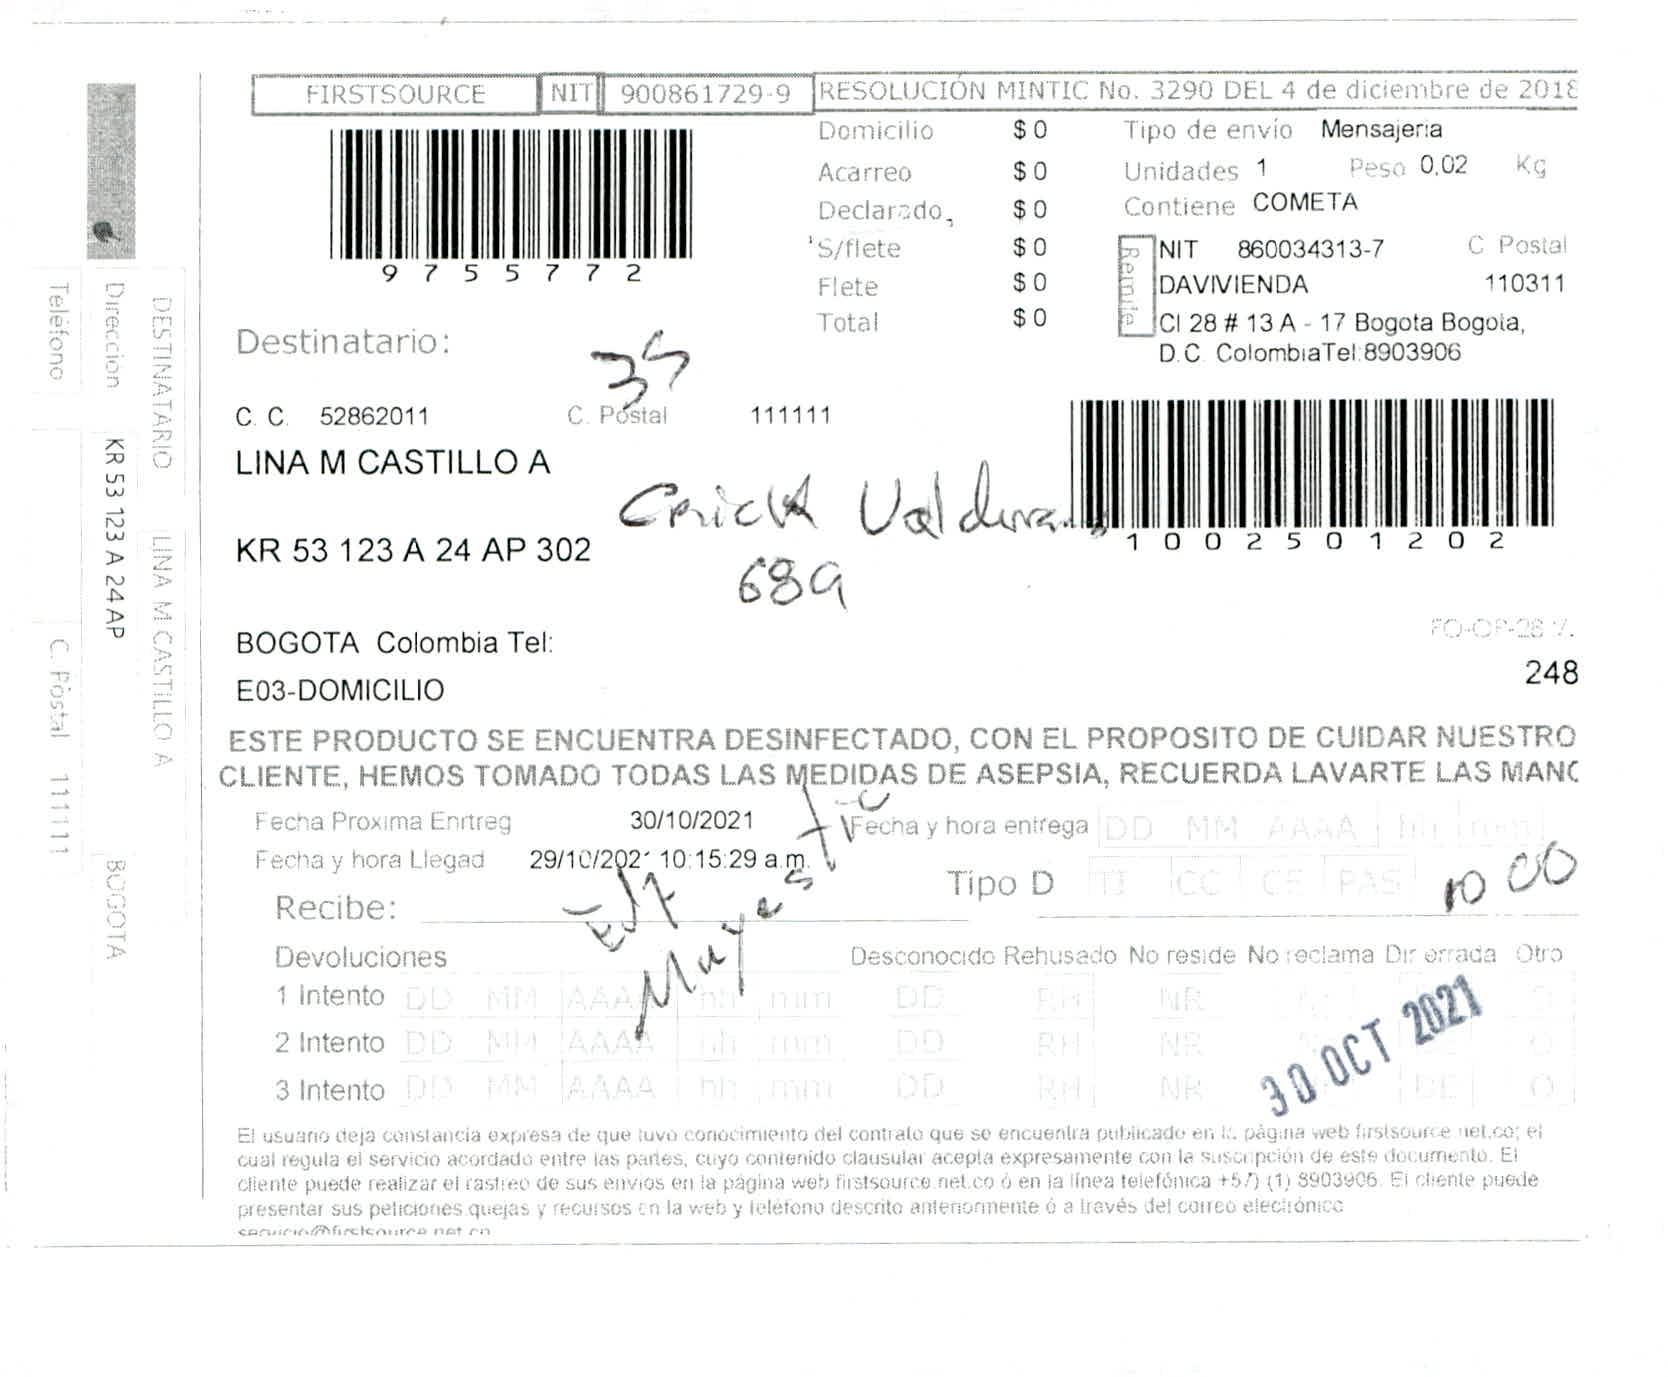 FIRSTSOURCE NIT 900861729-9 RESOLUCIÓN MINTIC No. 3290 DEL 4 de diciembre de 2018
9 7 5 5 7 7 2
Domicilio $ 0
Acarreo $ 0
Declarado, $ 0
S/flete $ 0
Flete $ 0
Total $ 0
Tipo de envío Mensajeria
Unidades 1 Peso 0,02 Kg
Contiene COMETA
Remite
NIT 860034313-7 C Postal
DAVIVIENDA 110311
Cl 28 # 13 A - 17 Bogota Bogota,
D.C. Colombia Tel:8903906
Destinatario:
C. C. 52862011 C. Postal 111111
LINA M CASTILLO A
KR 53 123 A 24 AP 302
689
1 0 0 2 5 0 1 2 0 2
BOGOTA Colombia Tel:
E03-DOMICILIO
248
ESTE PRODUCTO SE ENCUENTRA DESINFECTADO, CON EL PROPOSITO DE CUIDAR NUESTRO
CLIENTE, HEMOS TOMADO TODAS LAS MEDIDAS DE ASEPSIA, RECUERDA LAVARTE LAS MANO
Fecha Proxima Enrtreg 30/10/2021
Fecha y hora entrega DD MM AAAA hh mm
Fecha y hora Llegad 29/10/2021 10:15:29 a.m.
Tipo D TI CC CE PAS
10 00
Recibe:
Devoluciones Desconocido Rehusado No reside No reclama Dir errada Otro
1 Intento DD MM AAAA hh mm DD RH NR O
2 Intento DD MM AAAA hh mm DD RH NR O
3 Intento DD MM AAAA hh mm DD RH NR DE O
30 OCT 2021
El usuario deja constancia expresa de que tuvo conocimiento del contrato que se encuentra publicado en la página web firstsource.net.co; el
cual regula el servicio acordado entre las partes, cuyo contenido clausular acepta expresamente con la suscripción de este documento. El
cliente puede realizar el rastreo de sus envios en la página web firstsource.net.co ó en la línea telefónica +57) (1) 8903906. El cliente puede
presentar sus peticiones quejas y recursos en la web y teléfono descrito anteriormente ó a través del correo electrónico
servicio@firstsource.net.co
DESTINATARIO LINA M CASTILLO A
Direccion KR 53 123 A 24 AP BOGOTA
Teléfono C. Postal 111111